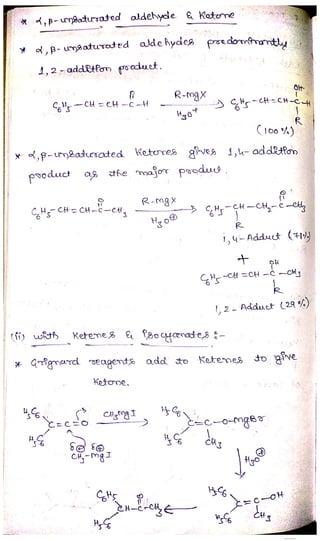 * α,β-unsaturated aldehyde & Ketone
* α,β-unsaturated aldehydes predominantly
1,2-addition product.
C₆H₅-CH=CH-C(=O)-H —R-MgX / H₃O⁺→ C₆H₅-CH=CH-C(OH)(R)-H
(100%)
* α,β-unsaturated Ketones gives 1,4-addition
product as the major product.
C₆H₅-CH=CH-C(=O)-CH₃ —R-MgX / H₃O⊕→ C₆H₅-CH(R)-CH₂-C(=O)-CH₃
1,4-Adduct (71%)
+
C₆H₅-CH=CH-C(OH)(R)-CH₃
1,2-Adduct (29%)
(ii) with Ketenes & Isocyanates :-
* Grignard reagents add to Ketenes to give
Ketone.
H₅C₆ H₅C₆ C=C=O —CH₃MgI→ H₅C₆ H₅C₆ C=C-O-MgBr CH₃
δ⊖ δ⊕
CH₃-MgI
↓ H₃O⊕
C₆H₅ H₅C₆ CH-C(=O)-CH₃ ← H₅C₆ H₅C₆ C=C-OH CH₃